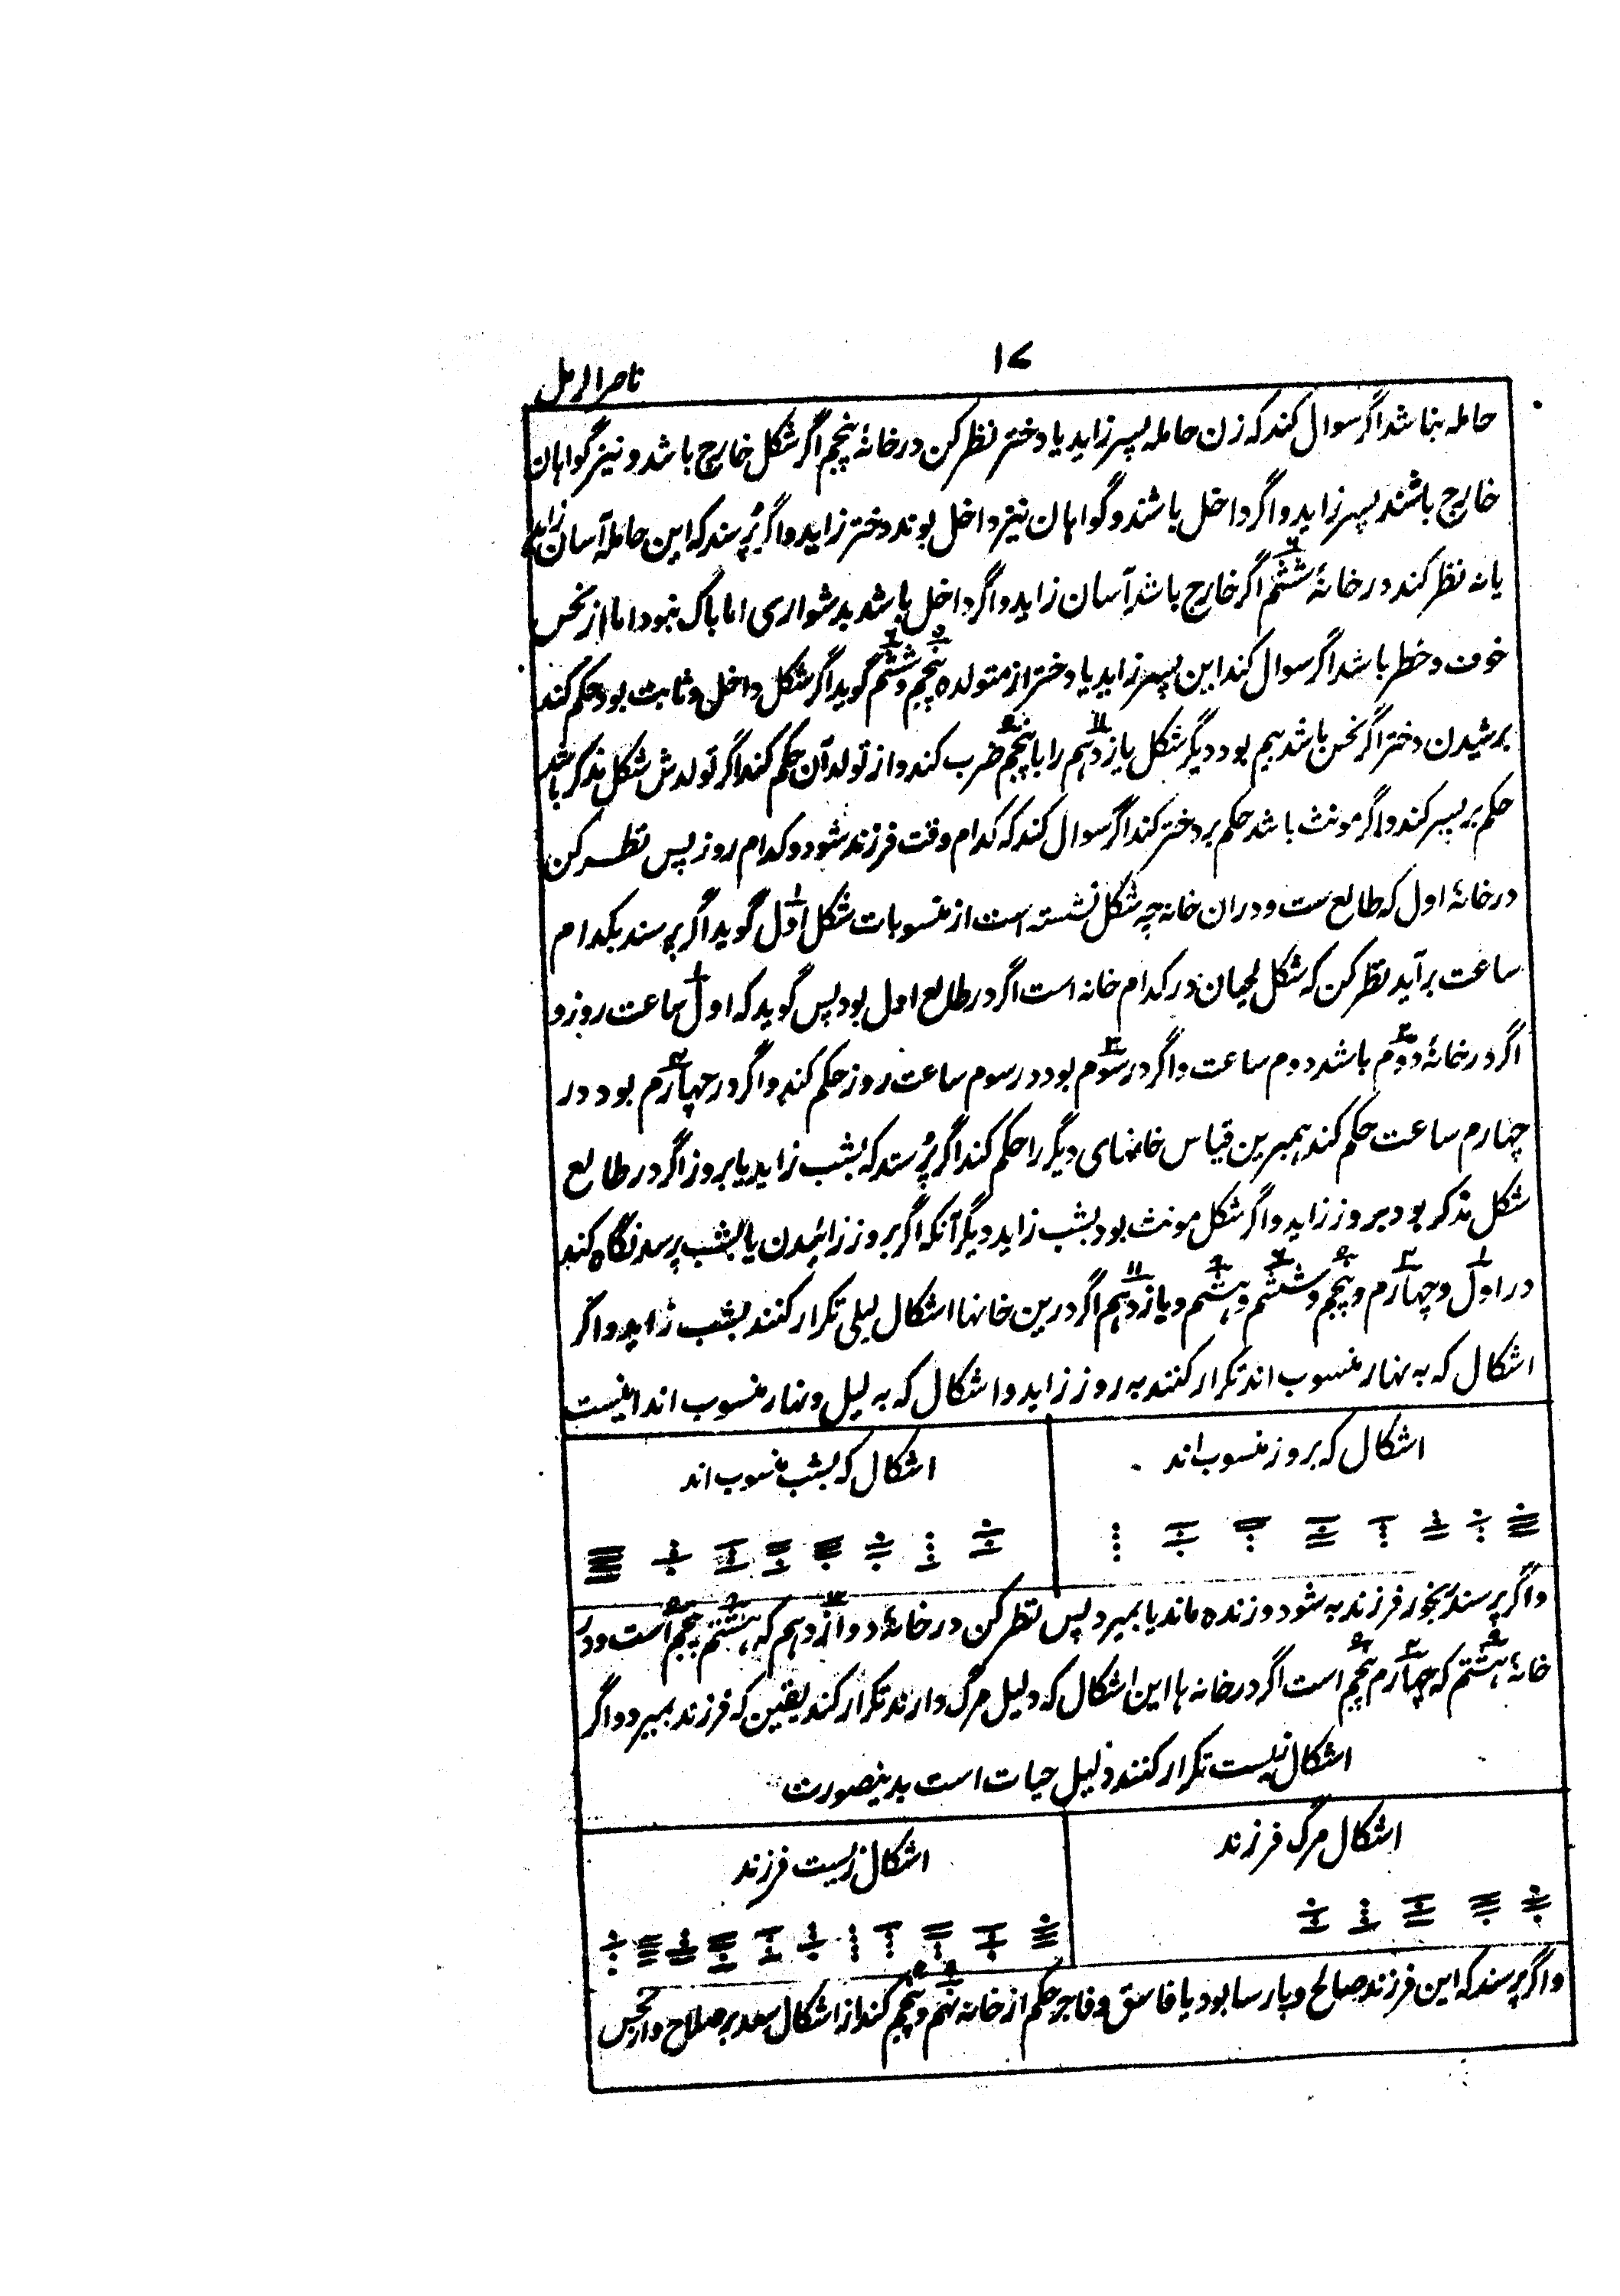 ۱۷
ناصر الرمل
حامله نباشد اگر سوال کند که زن حامله پسر زاید یا دختر نظر کن در خانهٔ پنجم اگر شکل خارج باشد و نیز گواهان
خارج باشند پسر زاید و اگر داخل باشند و گواهان نیز داخل بوند دختر زاید و اگر پُرسند که این حامله آسان زاید
یا نه نظر کند در خانهٔ ششم ۶ اگر خارج باشد آسان زاید و اگر داخل باشد بدشواری اما باک نبود اما از نحس
خوف و خطر باشد اگر سوال کند این پسر زاید یا دختر از متولده پنجم ۵ و ششم ۶ گوید اگر شکل داخل و ثابت بود حکم کند
بر شیدن دختر اگر نحس باشد بیم بود دیگر شکل یازدهم ۱۱ را با پنجم ۵ ضرب کند و از تولد آن حکم کند اگر تولدش شکل مذکر باشد
حکم بر پسر کند و اگر مونث باشد حکم بر دختر کند اگر سوال کند که کدام وقت فرزند شود و کدام روز پس نظر کن
در خانهٔ اول که طالع ست و دران خانه چه شکل نشسته است از منسوبات شکل اول ۱ گوید اگر پرسند بکدام
ساعت برآید نظر کن که شکل لحیان در کدام خانه است اگر در طالع اول بود پس گوید که اول ۱ ساعت روز و
اگر در خانهٔ دوم ۲ باشد دوم ساعت و اگر در سوم ۳ بود در سوم ساعت روز حکم کند و اگر در چهارم ۴ بود در
چهارم ساعت حکم کند همبرین قیاس خانهای دیگر را حکم کند اگر پُرسند که بشب زاید یا بروز اگر در طالع
شکل مذکر بود بروز زاید و اگر شکل مونث بود بشب زاید دیگر آنکه اگر بروز زائیدن یا بشب پرسد نگاه کند
در اول ۱ و چهارم ۴ و پنجم ۵ و ششم ۶ و هشتم و یازدهم ۱۱ اگر درین خانها اشکال لیلی تکرار کنند بشب زاید و اگر
اشکال که به نهار منسوب اند تکرار کنند به روز زاید و اشکال که به لیل و نهار منسوب اند اینست
اشکال که بروز منسوب اند
اشکال که بشب منسوب اند
و اگر پرسند رنجور فرزند به شود و زنده ماند یا بمیرد پس نظر کن در خانهٔ دوازدهم ۱۲ که هشتم پنجم ۵ است و در
خانهٔ هشتم که چهارم ۴ پنجم ۵ است اگر در خانه ها این اشکال که دلیل مرگ دارند تکرار کند یقین که فرزند بمیرد و اگر
اشکال زیست تکرار کنند دلیل حیات است بدینصورت
اشکال مرگ فرزند
اشکال زیست فرزند
و اگر پرسند که این فرزند صالح و پارسا بود یا فاسق و فاجر حکم از خانه نهم ۹ و پنجم ۵ کند از اشکال سعد بر صلاح و از نحس